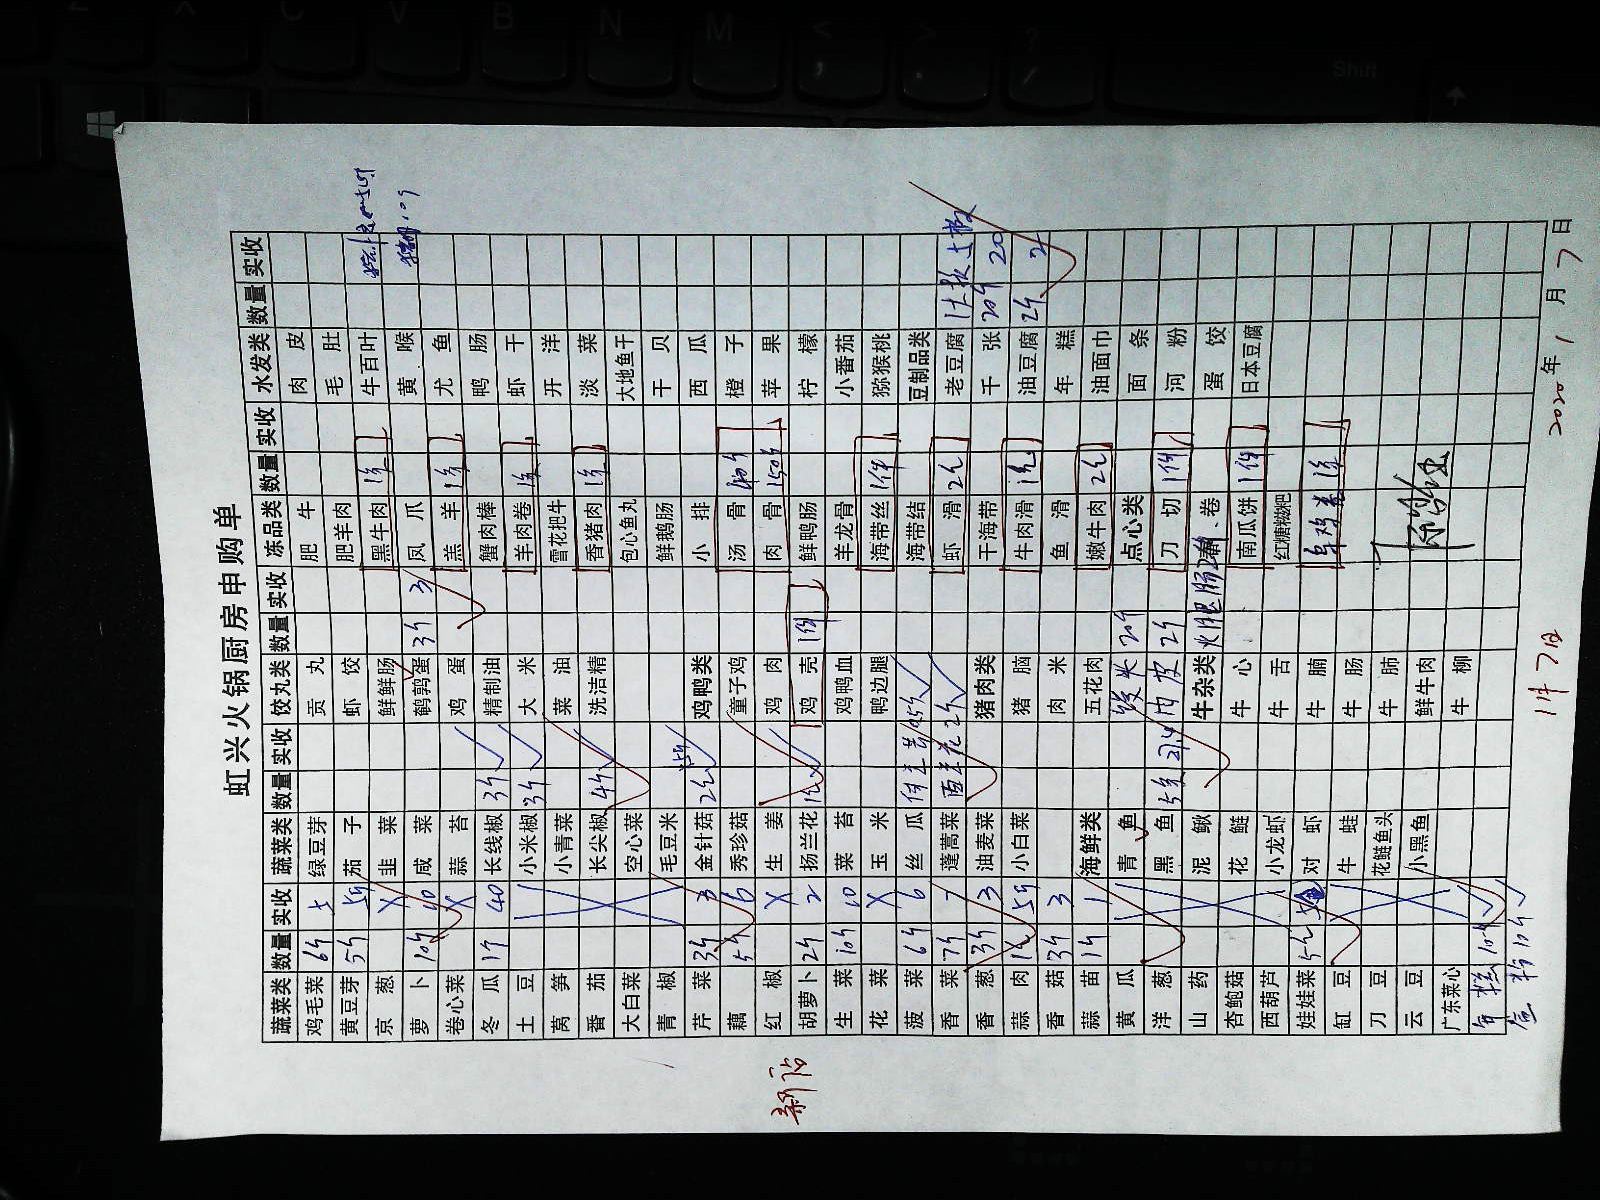 虹兴火锅厨房申购单
蔬菜类 数量 实收 蔬菜类 数量 实收 饺丸类 数量 实收 冻品类 数量 实收 水发类 数量 实收
鸡毛菜 6斤 5 绿豆芽 贡丸 肥牛 肉皮
黄豆芽 5斤 5斤 茄子 虾饺 肥羊肉 毛肚
京葱 X 韭菜 鲜鲜肠 黑牛肉 1条 牛百叶
萝卜 10斤 10 咸菜 鹌鹑蛋 3斤 3 凤爪 黄喉
卷心菜 X 蒜苔 鸡蛋 羔羊 1条 尤鱼
冬瓜 1个 40 长线椒 3斤 精制油 蟹肉棒 鸭肠
土豆 小米椒 3斤 大米 羊肉卷 1条 虾干
莴笋 小青菜 菜油 雪花把牛 开洋
番茄 长尖椒 4斤 洗洁精 香猪肉 1条 淡菜
大白菜 空心菜 包心鱼丸 大地鱼干
青椒 毛豆米 鲜鹅肠 干贝
芹菜 3斤 3 金针菇 2包 鸡鸭类 小排 西瓜
藕 5斤 6 秀珍菇 童子鸡 汤骨 40斤 橙子
红椒 X 生姜 鸡肉 肉骨 150斤 苹果
胡萝卜 2斤 2 扬兰花 1包 鸡壳 1件 鲜鸭肠 柠檬
生菜 10斤 10 菜苔 鸡鸭血 羊龙骨 小番茄
花菜 X 玉米 鸭边腿 海带丝 1件 猕猴桃
菠菜 6斤 6 丝瓜 海带结 豆制品类
香菜 7斤 7 蓬蒿菜 西兰花 2斤 虾滑 2包 老豆腐
香葱 3斤 3 油麦菜 猪肉类 干海带 千张 20斤 20
蒜肉 1包 5斤 小白菜 猪脑 牛肉滑 1包 油豆腐 2斤 2
香菇 3斤 3 肉米 鱼滑 年糕
蒜苗 1斤 1 海鲜类 五花肉 嫩牛肉 2包 油面巾
黄瓜 青鱼 20斤 点心类 面条
洋葱 黑鱼 5条 肉皮 2斤 刀切 1件 河粉
山药 泥鳅 牛杂类 火腿肠 春卷 蛋饺
杏鲍菇 花鲢 牛心 南瓜饼 1件 日本豆腐
西葫芦 小龙虾 牛舌 红糖糍粑
娃娃菜 5包 对虾 牛腩 乌鸡卷 1条
缸豆 牛蛙 牛肠
刀豆 花鲢鱼头 牛肺
云豆 小黑鱼 鲜牛肉
广东菜心 牛柳
年糕 10斤
10斤
2020年1月7日
1月7日
新店